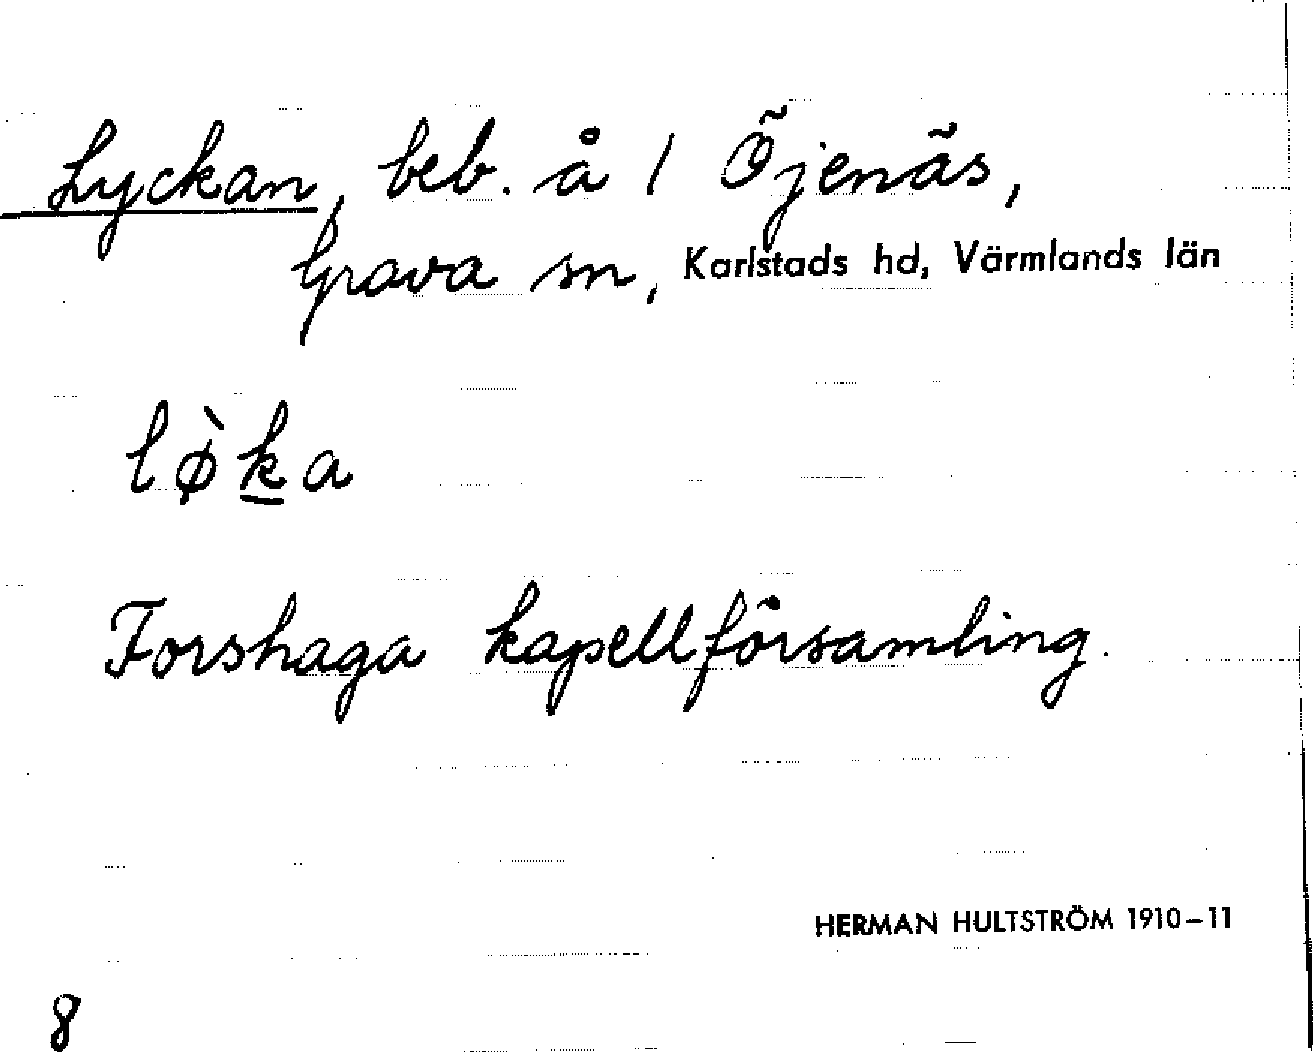 Lyckan, beb. å 1 Öjenäs,
Grava sn, Karlstads hd, Värmlands län
lø̀k̲a
Forshaga kapellförsamling.
HERMAN HULTSTRÖM 1910–11
8